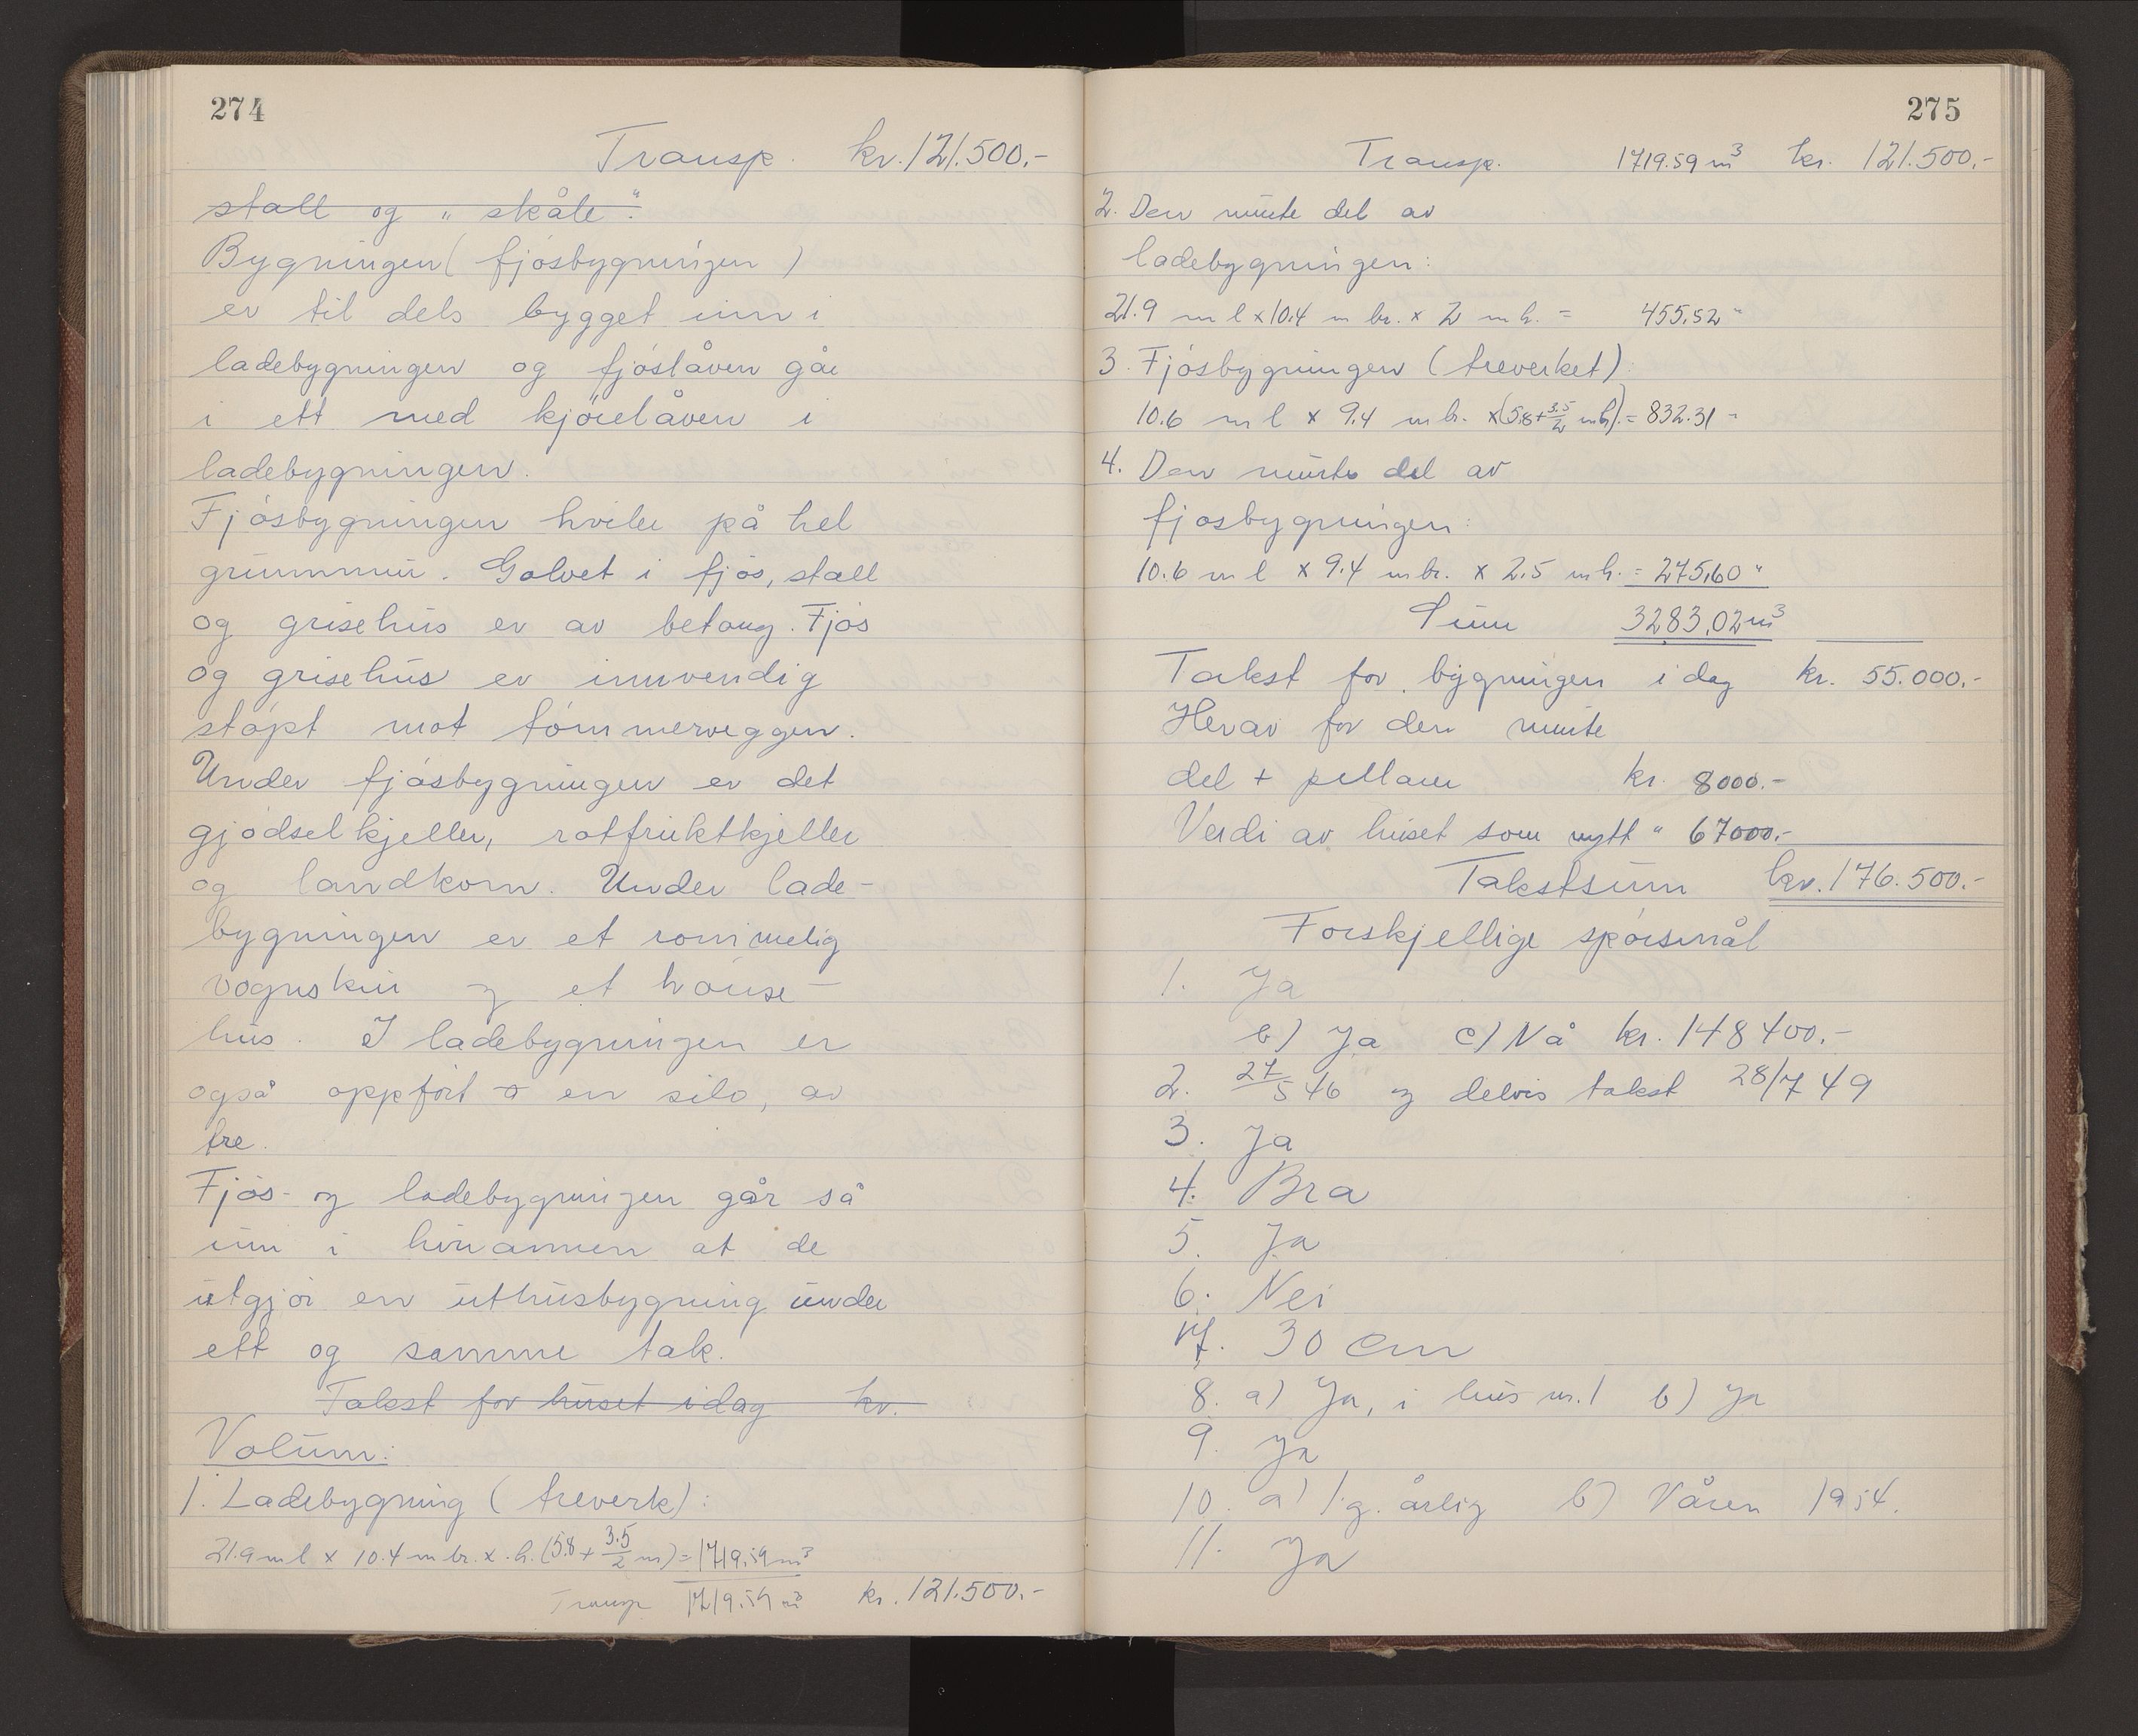 274
Transp. kr. 121.500.-
stall og „ skåle".
Bygningen ( fjøsbygningen )
er til dels bygget inn i
ladebygningen og fjøslåven går
i ett med kjørelåven i
ladebygningen.
Fjøsbygningen hviler på hel
grunnmur. Golvet i fjøs, stall
og grisehus er av betong. Fjøs
og grisehus er innvendig
støpt mot tømmerveggen.
Under fjøsbygningen er det
gjødselkjeller, rotfruktkjeller
og landkom. Under lade-
bygningen er et rommelig
vognskur og et hønse-
hus. I ladebygningen er
også oppført en silo, av
tre.
Fjøs- og ladebygningen går så
inn i hinannen at de
utgjør en uthusbygning under
ett og samme tak.
Takst for huset idag kr.
Volum:
1. Ladebygning ( treverk) :
21.9 m l x 10.4 m br. x h. (5.8 + 3.5/2 m) = 1719.59 m³
Transp 1719.59 m³ kr. 121.500.-
275
Transp. 1719.59 m³ kr. 121.500.-
2. Den murte del av
ladebygningen:
21.9 m l x 10.4 m br. x 2 m h. = 455,52 "
3. Fjøsbygningen (treverket) :
10.6 m l x 9.4 m br. x (5.8 + 3.5/2 m h). = 832.31 -
4. Den murte del av
fjøsbygningen:
10.6 m l x 9.4 m br. x 2.5 m h. = 275,60 "
Sum 3283,02 m³
Takst for bygningen i dag kr. 55.000.-
Herav for den murte
del + kr. 8000.-
Verdi av huset som nytt " 67000.-
Takstsum kr. 176.500.-
Forskjellige spørsmål
1. Ja
b) Ja c) Nå kr. 148400.-
2. 27/5 46 og delvis takst 28/7 49
3. Ja
4. Bra
5. Ja
6. Nei
7. 30 cm
8. a) Ja, i hus nr. 1 b) Ja
9. Ja
10. a) 1 g. årlig b) Våren 1954.
11. Ja